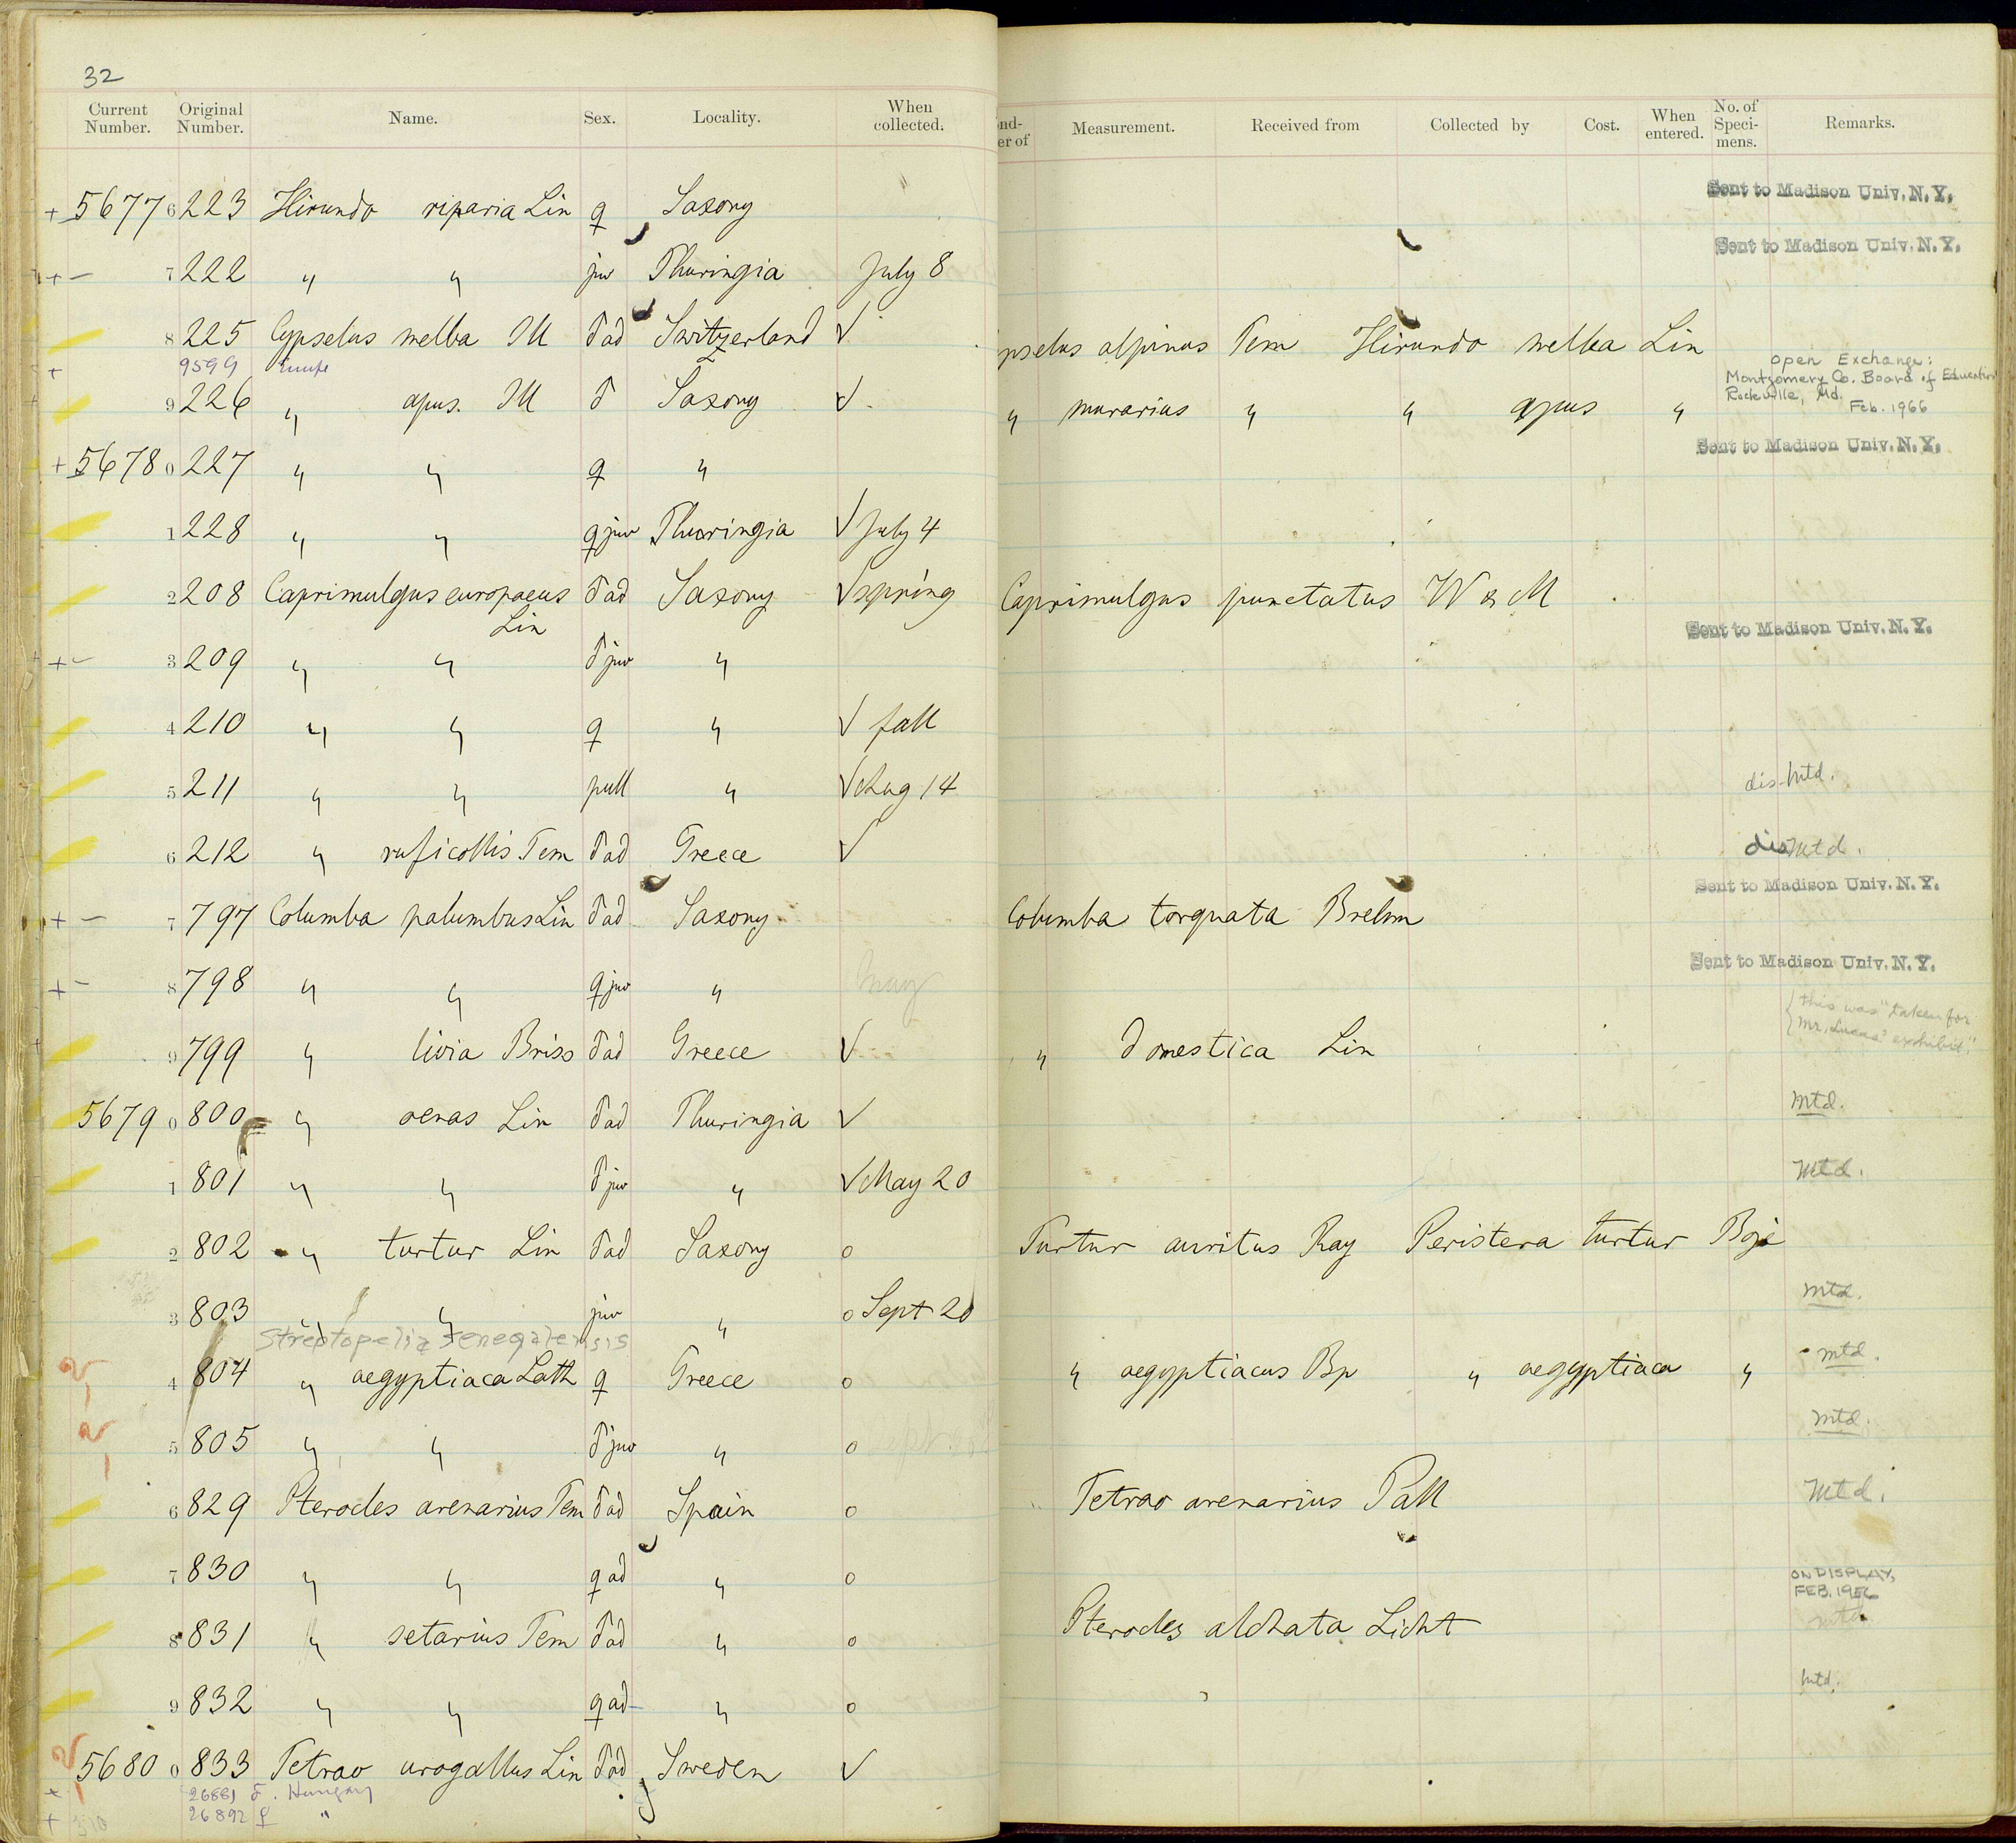 32
Current Number. Original Number. Name. Sex. Locality. When collected. Measurement. Received from Collected by Cost. When entered. No. of Speci- mens. Remarks.
+ 5677 6 223 Hirundo riparia Lin ♀ Saxony Sent to Madison Univ. N. Y.
+ – 7 222 " " juv Thuringia July 8 Sent to Madison Univ. N. Y.
8 225 Cypselus melba Ill ♂ ad Switzerland √ pselus alpinus Tem Hirundo melba Lin
+ 9599 Open Exchange:
Montgomery Co. Board of Education
Rockville, Md.
Feb. 1966
9 226 " apus. Ill ♂ Saxony √ " murarius " " apus "
+ 5678 0 227 " " ♀ " Sent to Madison Univ. N. Y.
1 228 " " ♀ juv Thuringia √ July 4
2 208 Caprimulgus europaeus Lin ♂ ad Saxony √ spring Caprimulgus punctatus W & M
+ – 3 209 " " ♂ juv " Sent to Madison Univ. N. Y.
4 210 " " ♀ " √ fall
5 211 " " pull " √ Aug 14 dis-Mtd.
6 212 " ruficollis Tem ♂ ad Greece √ dis Mtd.
+ – 7 797 Columba palumbus Lin ♂ ad Saxony Columba torquata Brehm Sent to Madison Univ. N. Y.
+ – 8 798 " " ♀ juv " May Sent to Madison Univ. N. Y.
9 799 " livia Briss ♂ ad Greece √ " domestica Lin
this was "taken for
Mr. Lucas' exhibit."
5679 0 800 " oenas Lin ♂ ad Thuringia √ Mtd.
1 801 " " ♂ juv " √ May 20 Mtd.
2 802 " turtur Lin ♂ ad Saxony o Turtur auritus Ray Peristera turtur Boje
3 803 " " juv " o Sept 20 Mtd.
Streptopelia senegalensis
4 804 " aegyptiaca Lath ♀ Greece o " aegyptiacus Bp " aegyptiaca " mtd.
5 805 " " ♂ juv " o mtd.
6 829 Pterocles arenarius Tem ♂ ad Spain o Tetrao arenarius Pall Mtd.
7 830 " " ♀ ad " o
ON DISPLAY,
FEB. 1956
8 831 " setarius Tem ♂ ad " o Pterocles alchata Licht mtd.
9 832 " " ♀ ad " o Mtd.
5680 0 833 Tetrao urogallus Lin ♂ ad Sweden √
+ 26881 ♂. Hungary
+ 26892 ♀ "